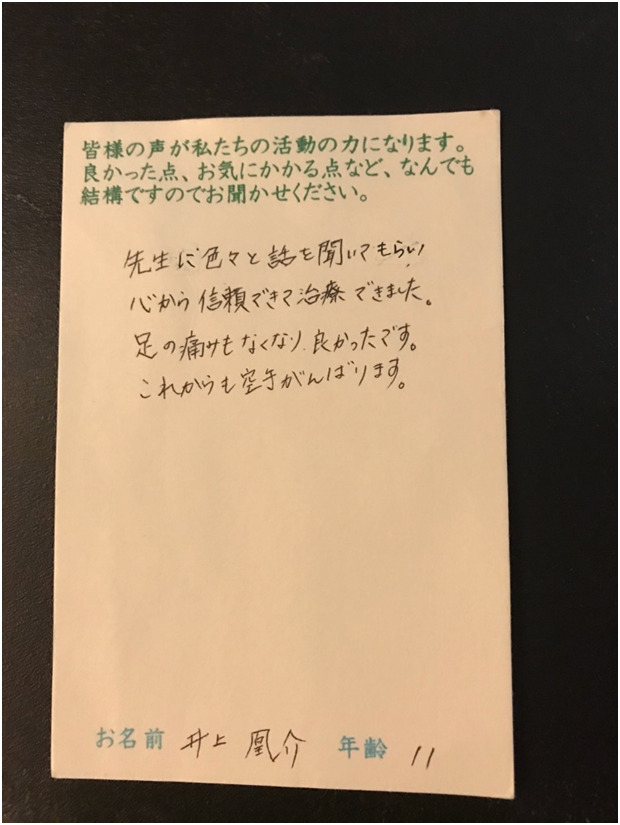 皆様の声が私たちの活動の力になります。
良かった点、お気にかかる点など、なんでも
結構ですのでお聞かせください。
先生に色々と話を聞いてもらい
心から信頼できて治療できました。
足の痛みもなくなり、良かったです。
これからも空手がんばります。
お名前 井上 凰介 年齢 11